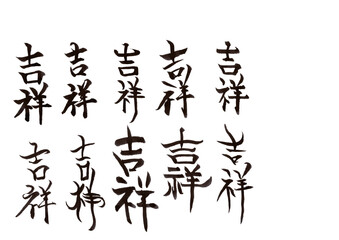 吉祥 吉祥 吉祥 吉祥 吉祥
吉祥 吉祥 吉祥 吉祥 吉祥